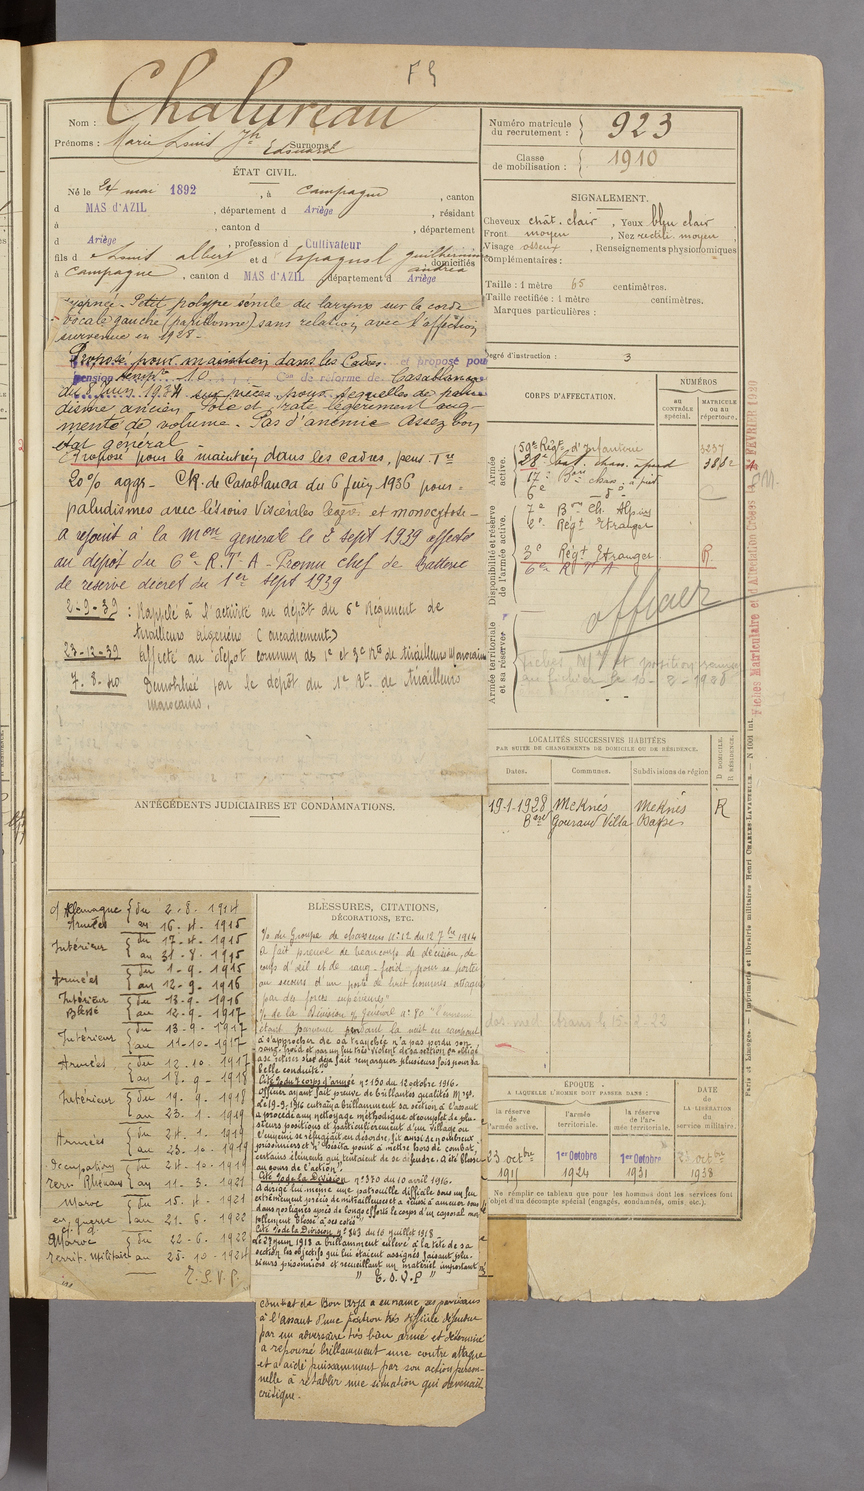 F 9
Nom : Chalureau
Prénoms : Marie Louis Jh Edouard Surnoms :
Numéro matricule du recrutement : 923
Classe de mobilisation : 1910
ÉTAT CIVIL.
Né le 24 mai 1892, à Campagne, canton
d MAS D'AZIL, département d Ariège, résidant
à , canton d , département
d Ariège, profession d Cultivateur
fils d Louis albert et d Espagnol guilhermine andréa domiciliés
à Campagne, canton d MAS D'AZIL département d Ariège
SIGNALEMENT.
Cheveux chât. clair, Yeux bleu clair
Front moyen, Nez rectil. moyen
Visage osseux, Renseignements physionomiques
complémentaires :
Taille : 1 mètre 65 centimètres.
Taille rectifiée : 1 mètre centimètres.
Marques particulières :
Degré d'instruction : 3
Petit polype sessile du larynx sur la corde
vocale gauche (papillome) sans relation avec l'affection
survenue en 1928.
Proposé pour maintien dans les Cadres et proposé pour
pension temp. 10 Con de réforme de Casablanca
du 8 juin 1934 sur pièces pour séquelles de palu-
disme ancien. Foie et rate légèrement aug-
menté de volume. Pas d'anémie assez bon
état général.
Proposé pour le maintien dans les cadres, pens. Tre
20% aggr. CR. de Casablanca du 6 juin 1936 pour :
paludismes avec lésions viscérales légères et monocytose.
A rejoint à la Mon générale le 2 sept 1939 affecté
au dépôt du 6e R.T.A - Promu chef de Batterie
de réserve décret du 1er sept 1939
2-9-39 : Rappelé à l'activité au dépôt du 6e Régiment de
tirailleurs algériens (encadrement)
23-12-39 Affecté au dépôt commun des 1e et 3e Rts de tirailleurs Marocains
7.8.40 Démobilisé par le dépôt du 1e Rt de tirailleurs
marocains.
CORPS D'AFFECTATION.
NUMÉROS
au CONTRÔLE spécial.
MATRICULE OU AU répertoire.
Armée active.
59e Régt d'Infanterie 3237
28e bat. chas. à pied 3882
17e Bon chas. à pied
6e _d°_
Disponibilité et réserve de l'armée active.
7e Bon Ch. Alpins
2e Régt Etranger
3e Régt Etranger R.
6e R.T.A
officier
Armée territoriale et sa réserve
Fiches Matriculaire et d'Affectation Créées le FÉVRIER 1930
LOCALITÉS SUCCESSIVES HABITÉES
PAR SUITE DE CHANGEMENTS DE DOMICILE OU DE RÉSIDENCE.
Dates. Communes. Subdivisions de région D DOMICILE. R RÉSIDENCE.
19-1-1928 Meknès Meknès R
Gouraud Villa
ANTÉCÉDENTS JUDICIAIRES ET CONDAMNATIONS.
c/ Allemagne
Armées du 2-8-1914 au 16-4-1915
Intérieur du 17-4-1915 au 31-8-1915
Armées du 1-9-1915 au 12-9-1916
Intérieur Blessé du 13-9-1916 au 12-9-1917
Intérieur du 13-9-1917 au 11-10-1917
Armées du 12.10.1917 au 18.9.1918
Intérieur du 19.9.1918 au 23.1.1919
Armées du 24.1.1919 au 23.10.1919
Occupation terr. Rhénans du 24-10-1919 au 11-3.1921
Maroc en guerre du 15.4.1921 au 21.6.1922
Maroc territ. militaire du 22-6.1922 au 25.10-1924
T.S.V.P.
BLESSURES, CITATIONS,
DÉCORATIONS, ETC.
% du Groupe de chasseurs n°12 du 12 7bre 1914
a fait preuve de beaucoup de décision, de
coup d'œil et de sang-froid, pour se porter
au secours d'un poste de huit hommes attaqué
par des forces supérieures"
% de la Division % Général n°80 "l'ennemi
étant parvenu pendant la nuit en rampant
à s'approcher de sa tranchée n'a pas perdu son
sang froid et par un feu très violent de sa section l'a obligé
à se retirer s'est déjà fait remarquer plusieurs fois pour sa
belle conduite."
Cité % du 7 corps d'armée n°150 du 12 octobre 1916.
Officier ayant fait preuve de brillantes qualités Mres.
Le 19.9.1916 entraîna brillamment sa section à l'assaut
a procédé au nettoyage méthodique et complet de plu-
sieurs positions et particulièrement d'un village où
l'ennemi se réfugiait en désordre, fit ainsi de nombreux
prisonniers et n'hésita point à mettre hors de combat,
certains éléments qui tentaient de se défendre. A été blessé
au cours de l'action".
Cité % de la Division n°370 du 10 avril 1916.
A dirigé lui-même une patrouille difficile sous un feu
extrêmement précis de mitrailleuses et a réussi à amener sous
dans nos lignes après de longs efforts le corps d'un caporal mor-
tellement blessé à ses côtés.
Cité % de la Division n°343 du 10 juillet 1918
Le 29 juin 1918 a brillamment enlevé à la tête de sa
section les objectifs qui lui étaient assignés faisant plu-
sieurs prisonniers et recueillant un matériel important
" T.S.V.P "
combat de Bou Arfa a entraîné ses partisans
à l'assaut d'une position très difficile défendue
par un adversaire très bien armé et déterminé
a repoussé brillamment une contre attaque
et a aidé puissamment par son action person-
nelle à rétablir une situation qui devenait
critique.
dos. méd. trans le 15-2-22
ÉPOQUE
A LAQUELLE L'HOMME DOIT PASSER DANS :
la réserve de l'armée active. l'armée territoriale. la réserve de l'armée territoriale.
DATE de LA LIBÉRATION du service militaire.
23 octbre 1915
1er Octobre 1924
1er Octobre 1931
23 octbre 1938
Ne remplir ce tableau que pour les hommes dont les services font
objet d'un décompte spécial (engagés, condamnés, omis, etc.).
Paris et Limoges. — Imprimerie et librairie militaires Henri CHARLES-LAVAUZELLE. — N 1001 int.